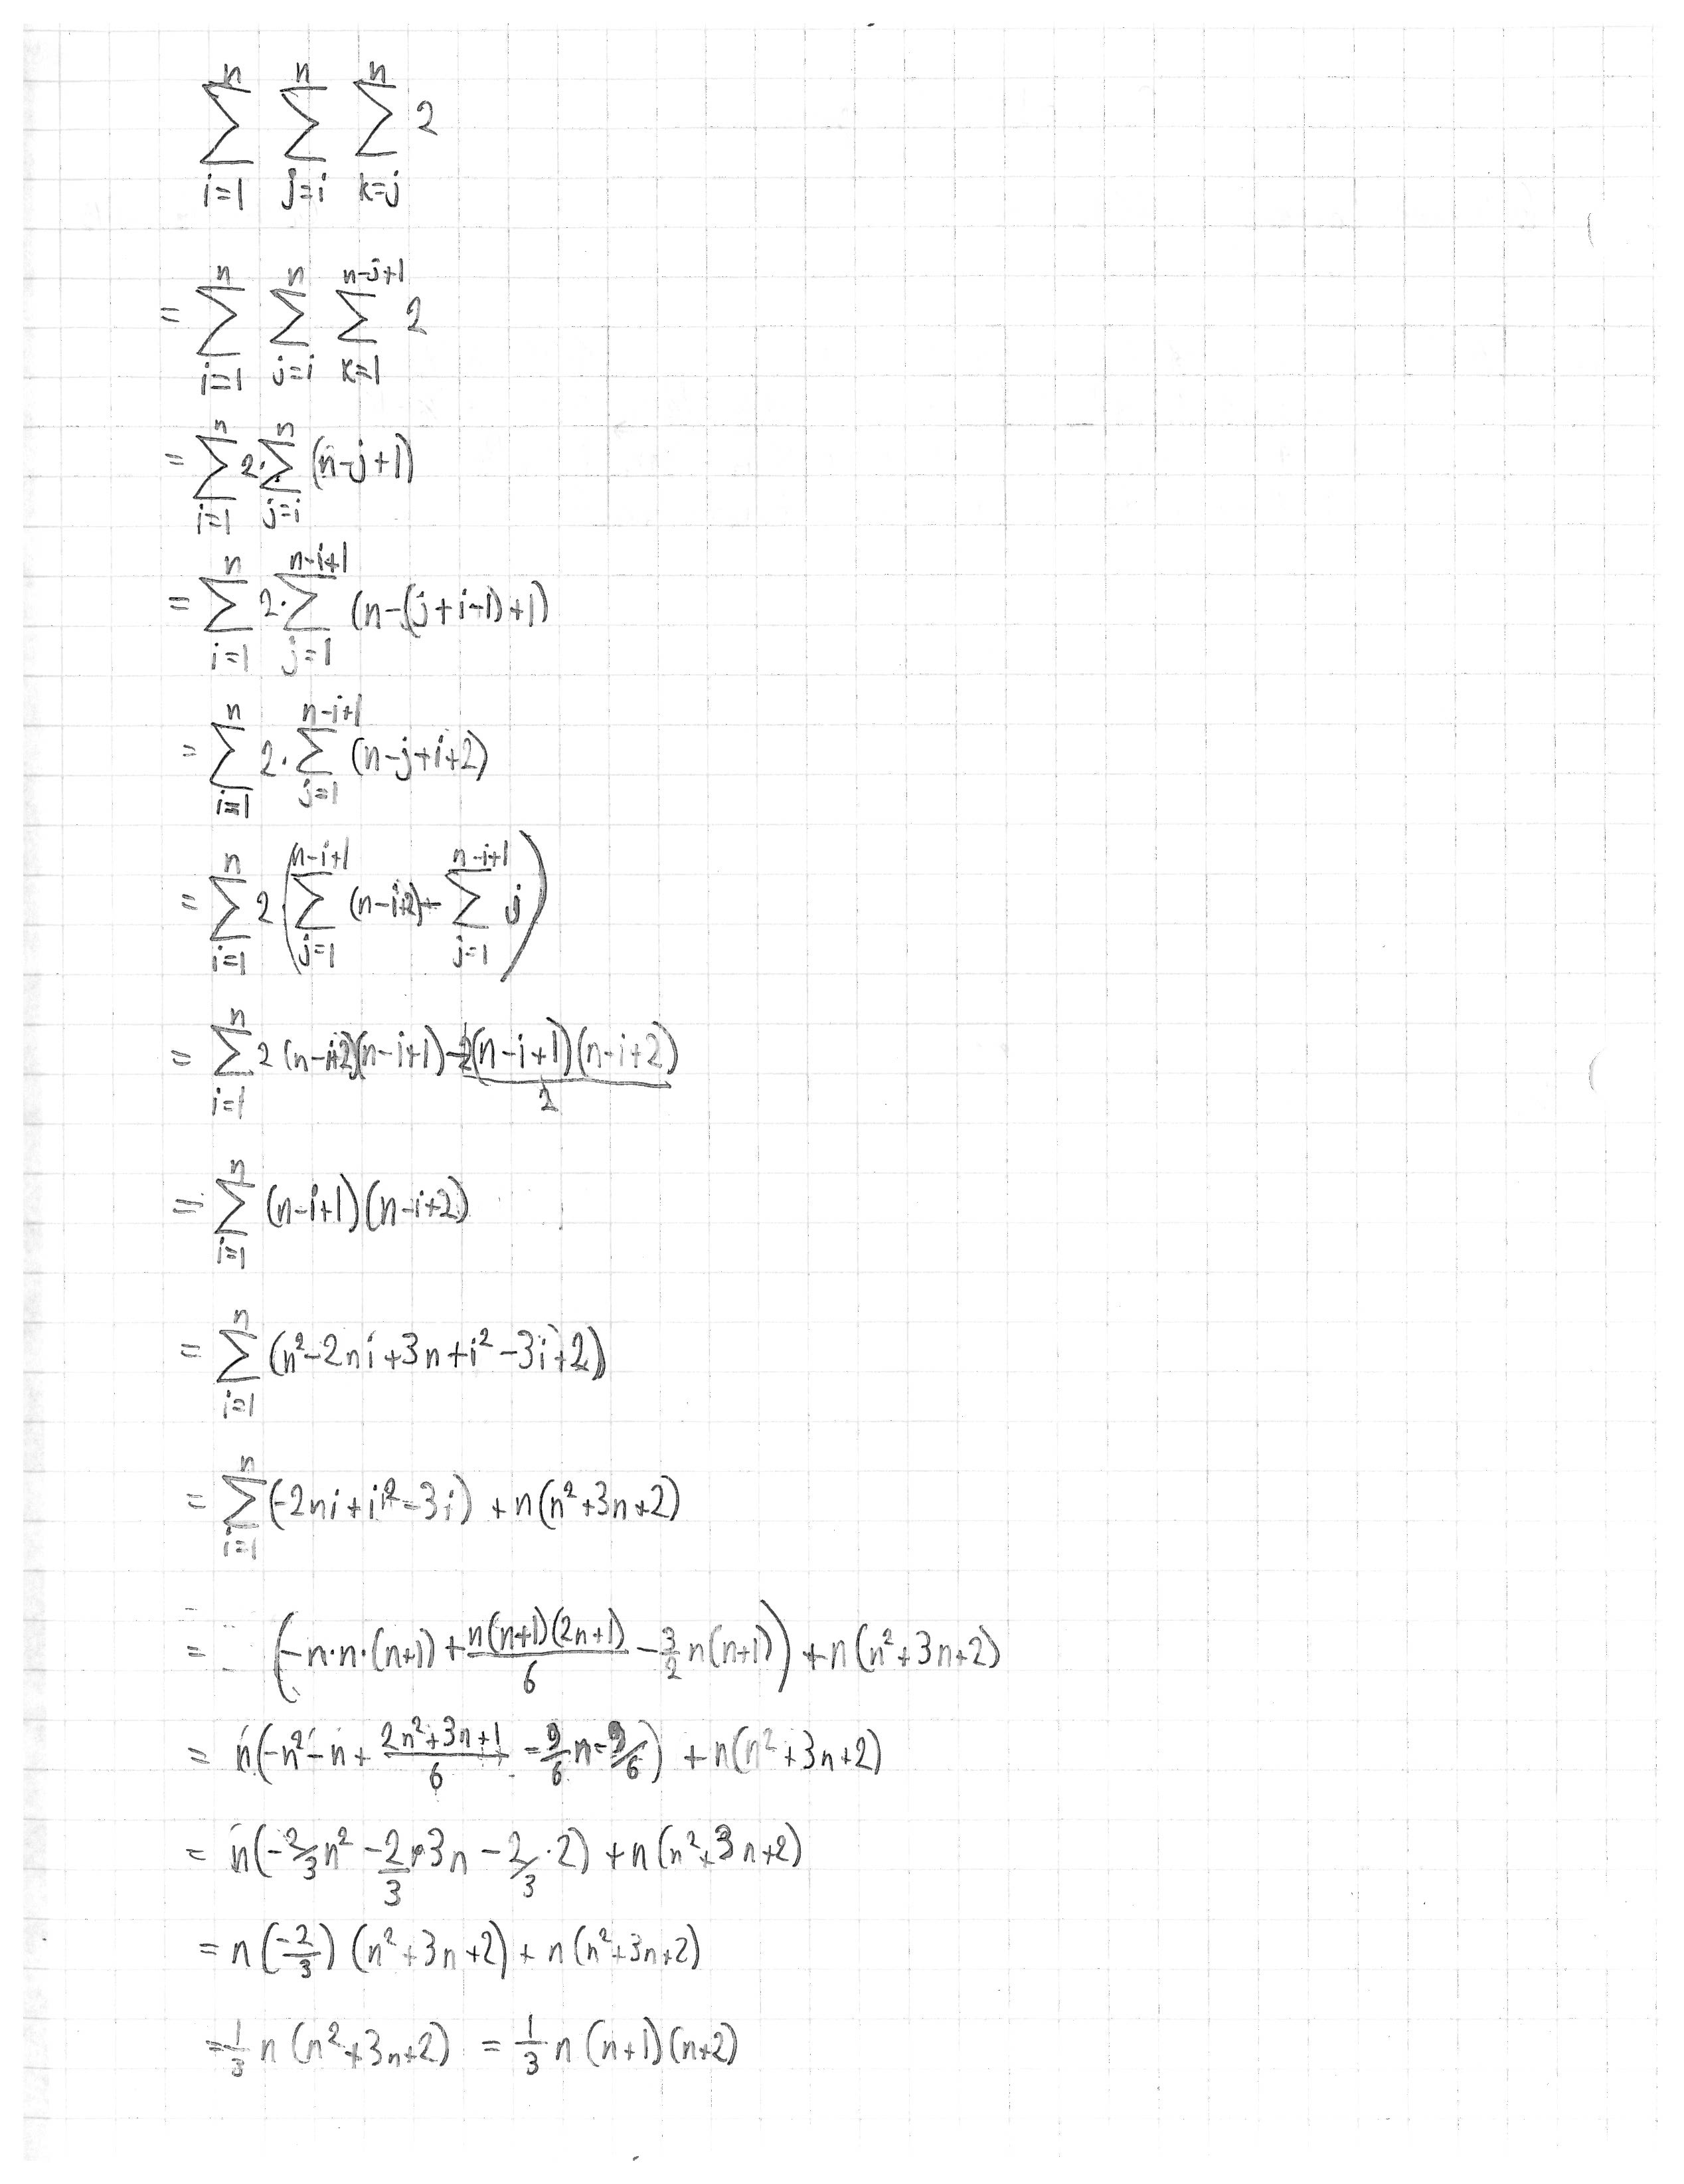 $\sum_{i=1}^{n} \sum_{j=i}^{n} \sum_{k=j}^{n} 2$
$= \sum_{i=1}^{n} \sum_{j=i}^{n} \sum_{k=1}^{n-j+1} 2$
$= \sum_{i=1}^{n} 2 \cdot \sum_{j=i}^{n} (n-j+1)$
$= \sum_{i=1}^{n} 2 \cdot \sum_{j=1}^{n-i+1} (n-(j+i-1)+1)$
$= \sum_{i=1}^{n} 2 \cdot \sum_{j=1}^{n-i+1} (n-j+i+2)$
$= \sum_{i=1}^{n} 2 \cdot \left( \sum_{j=1}^{n-i+1} (n-i+2) - \sum_{j=1}^{n-i+1} j \right)$
$= \sum_{i=1}^{n} 2 (n-i+2)(n-i+1) - \frac{2(n-i+1)(n-i+2)}{2}$
$= \sum_{i=1}^{n} (n-i+1)(n-i+2)$
$= \sum_{i=1}^{n} (n^2-2ni+3n+i^2-3i+2)$
$= \sum_{i=1}^{n} (-2ni+i^2-3i) + n(n^2+3n+2)$
$= \left( -n \cdot n \cdot (n+1) + \frac{n(n+1)(2n+1)}{6} - \frac{3}{2} n(n+1) \right) + n(n^2+3n+2)$
$= n \left( -n^2-n+ \frac{2n^2+3n+1}{6} - \frac{9}{6} n - \frac{9}{6} \right) + n(n^2+3n+2)$
$= n \left( -\frac{2}{3} n^2 - \frac{2}{3} \cdot 3n - \frac{2}{3} \cdot 2 \right) + n(n^2+3n+2)$
$= n \left( \frac{-2}{3} \right) (n^2+3n+2) + n(n^2+3n+2)$
$= \frac{1}{3} n (n^2+3n+2) = \frac{1}{3} n (n+1)(n+2)$